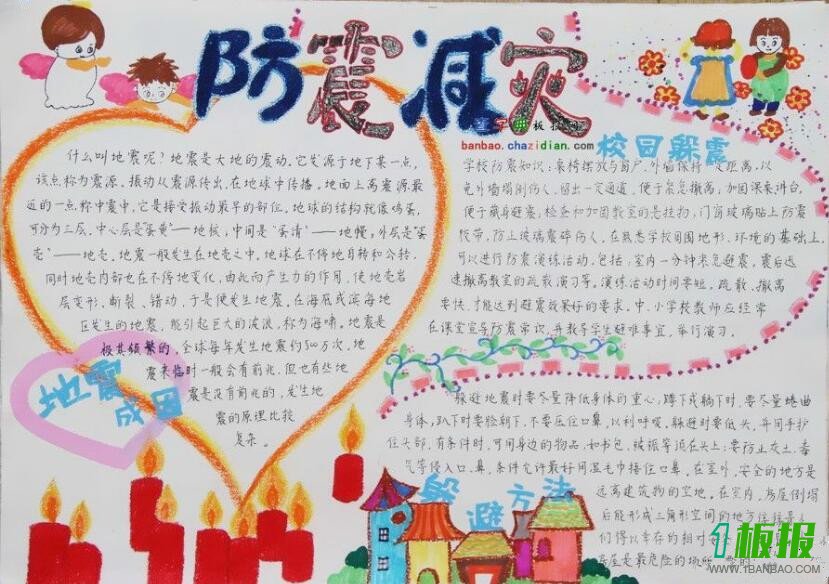 防震减灾
banbao.chazidian.com
校园躲震
什么叫地震呢?地震是大地的震动。它发源于地下某一点,
该点称为震源。振动从震源传出,在地球中传播。地面上离震源最
近的一点称中震中,它是接受振动最早的部位。地球的结构就像鸡蛋,
可分为三层。中心层是“蛋黄”——地核,中间是“蛋清”——地幔,外层是“蛋
壳”——地壳。地震一般发生在地壳之中。地球在不停地自转和公转,
同时地壳内部也在不停地变化,由此而产生力的作用,使地壳岩
层变形、断裂、错动,于是便发生地震。在海底或滨海地
区发生的地震,能引起巨大的波浪,称为海啸。地震是
极其频繁的,全球每年发生地震约500万次,地
震来临时一般会有前兆,但也有些地
震是没有前兆的,发生地
震的原理比较
复杂。
地震
成因
学校防震知识:桌椅摆放与窗户、外墙保持一定距离,以
免外墙塌倒伤人,留出一定通道,便于紧急撤离,加固课桌讲台,
便于藏身避震,检查和加固教室的悬挂物,门窗玻璃贴上防震
胶带,防止玻璃震碎伤人,在熟悉学校周围地形、环境的基础上,
可以进行防震演练活动,包括:室内一分钟紧急避震,震后迅
速撤离教室的疏散演习等。演练活动时间要短,疏散、撤离
要快,才能达到避震效果好的要求。中、小学校教师应经常
在课堂宣导防震常识,并教导学生避难事宜,举行演习。
躲避地震时要尽量降低身体的重心,蹲下或躺下时,要尽量蜷曲
身体,趴下时要脸朝下,不要压住口鼻,以利呼吸。躲避时要低头,并用手护
住头部,有条件时,可用身边的物品,如书包、被振等顶在头上;要防止灰土、毒
气等侵入口、鼻,条件允许最好用湿毛巾捂住口鼻。在室外,安全的地方是
远离建筑物的空地。在室内,房屋倒塌
后能形成三角形空间的地方往往是人
们得以幸存的相对
房屋是最危险的场所
躲避方法
1板报
WWW.1BANBAO.COM